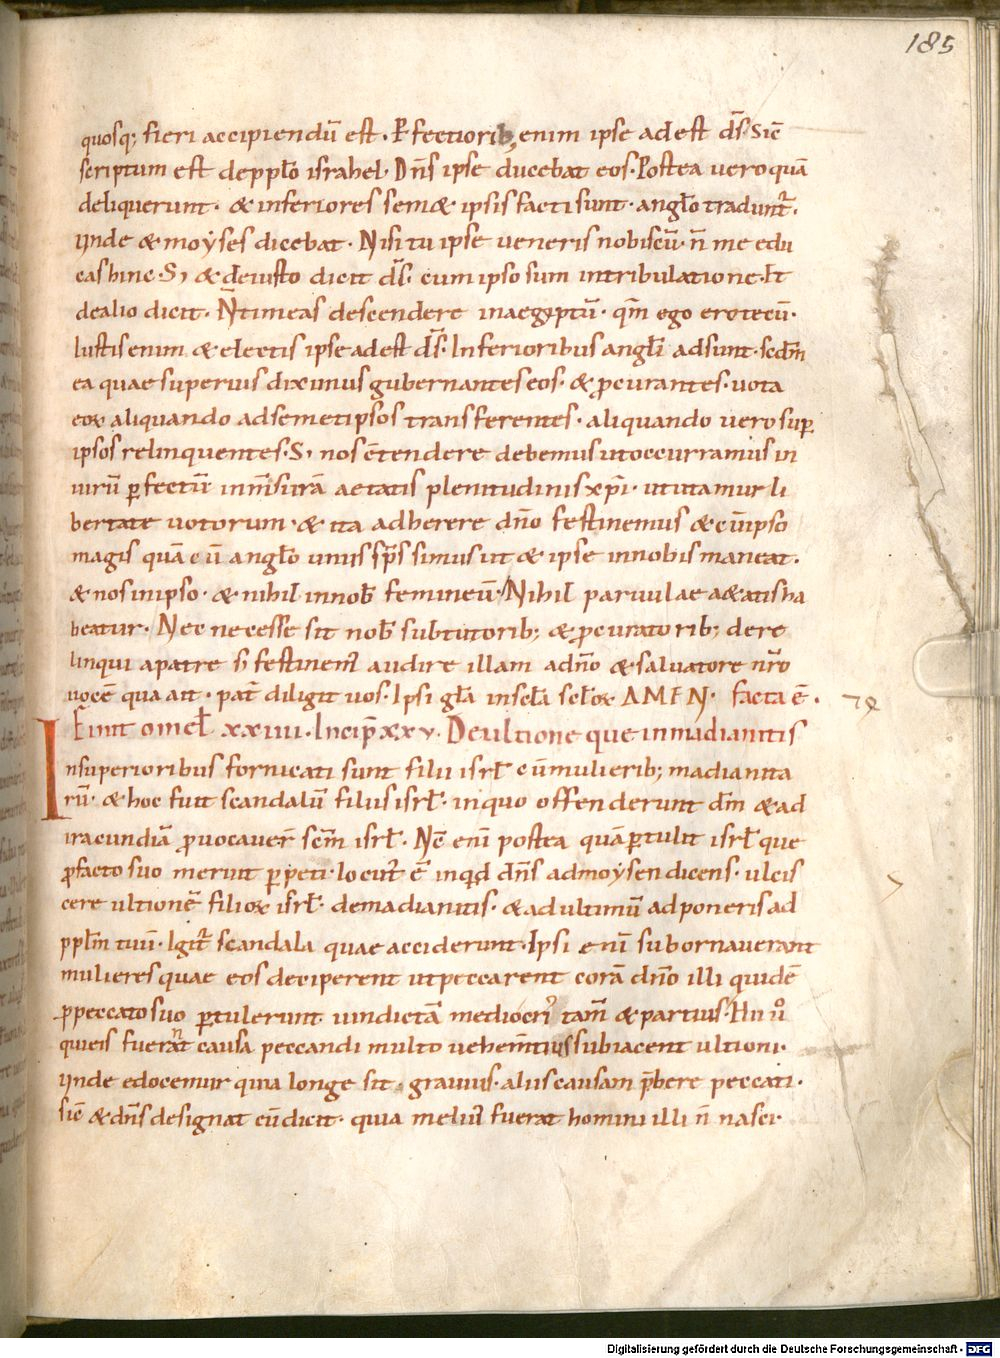 185
quosq; fieri accipiendū est. Pfectiorib; enim ipse adest d̄s. Sic̄
scriptum est de pplō israhel. Dn̄s ipse ducebat eos. Postea vero quā
deliquerunt. & inferiores semet ipsis facti sunt. anglō tradunt̄.
unde & moyses dicebat. Nisi tu ipse veneris nobiscū. n̄ me edu
cas hinc. S; & de iusto dicit d̄s. cum ipso sum in tribulatione. Et
de alio dicit. N̄ timeas descendere in aegyptū. qm̄ ego ero tecū.
Iustis enim & electis ipse adest d̄s. Inferioribus anglī adsunt. scdm̄
ea quae superius diximus gubernantes eos. & pcurantes. vota
eoꝝ aliquando ad semet ipsos transferentes. aliquando vero sup
ipsos relinquentes. S; nos c̄tendere debemus ut occurramus in
virū pfectū in m̄surā aetatis plenitudinis xp̄i. ut utamur li
bertate votorum. & ita adherere dn̄o festinemus & cū ipso
magis quā cū anglō unus sp̄s simus ut & ipse in nobis maneat.
& nos in ipso. & nihil in nob̄ femineū. Nihil parvulae aetatis ha
beatur. Nec necesse sit nob̄ sub tutorib; & pcuratorib; dere
linqui a patre s; festinem̄ audire illam a dn̄o & salvatore nr̄o
vocē qua ait. pat̄ diligit vos. Ipsi gl̄a in scl̄a scl̄oꝝ AMEN. facta ē.
Finit omel̄ xxiiii. Incip̄ xxv. De ultione que in madianitis
Insuperioribus fornicati sunt filii isrl̄ cū mulierib; madianita
rū. & hoc fuit scandalū filiis isrl̄. in quo offenderunt dm̄ & ad
iracundiā pvocaver̄ scm̄ isrl̄. Nc̄ eni postea quā ptulit isrl̄ que
pfacto suo meruit ppeti. locut̄ ē inquid dn̄s ad moysen dicens. ulcis
cere ultionē filioꝝ isrl̄. de madianitis. & ad ultimū adponeris ad
pplm̄ tuū. Igit̄ scandala quae acciderunt. Ipsi enī subornaverant
mulieres quae eos deciperent ut peccarent corā dn̄o illi quidē
ppeccato suo ptulerunt vindictā mediocrī tam̄ & partius. Hii v̊
qui eis fuerant causa peccandi multo vehem̄tius subiacent ultioni.
unde edocemur quia longe sit gravius. aliis causam p̄bere peccati.
sic̄ & dn̄s designat cū dicit. quia meliꝰ fuerat homini illi n̄ nasci.
Digitalisierung gefördert durch die Deutsche Forschungsgemeinschaft - DFG